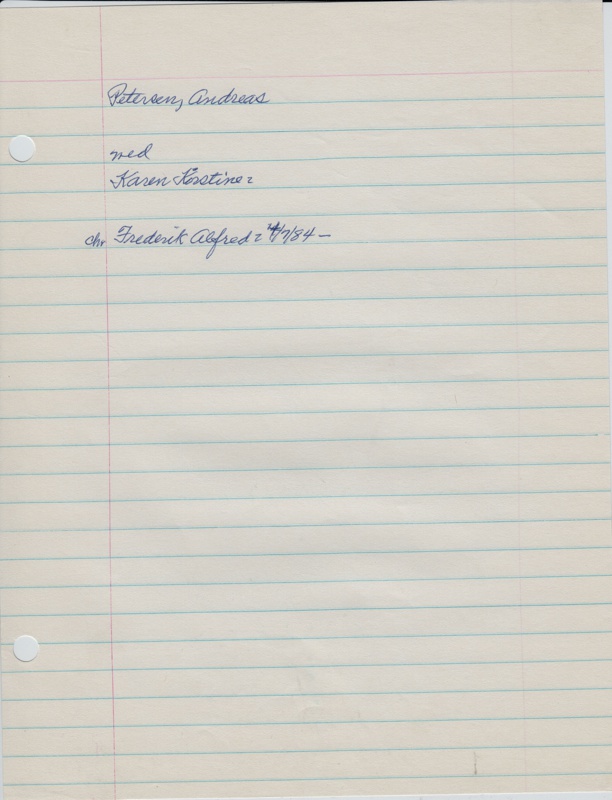 Petersen, Andreas
med
Karen Kirstine
chr Frederik Alfred /7/84 —